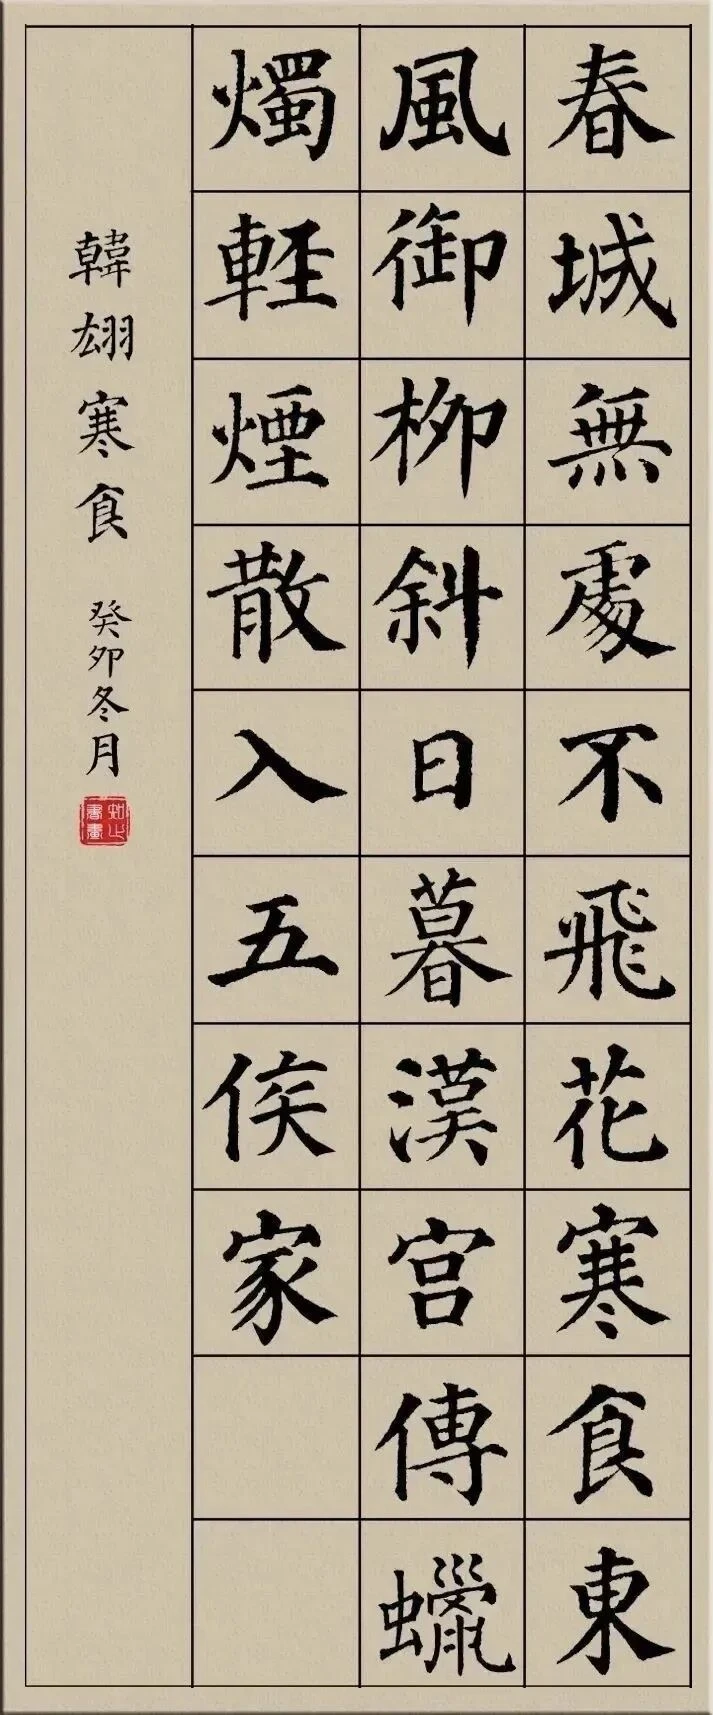 春城無處不飛花寒食東
風御柳斜日暮漢宮傳蠟
燭輕煙散入五侯家
韓翃寒食 癸卯冬月
知止書畫